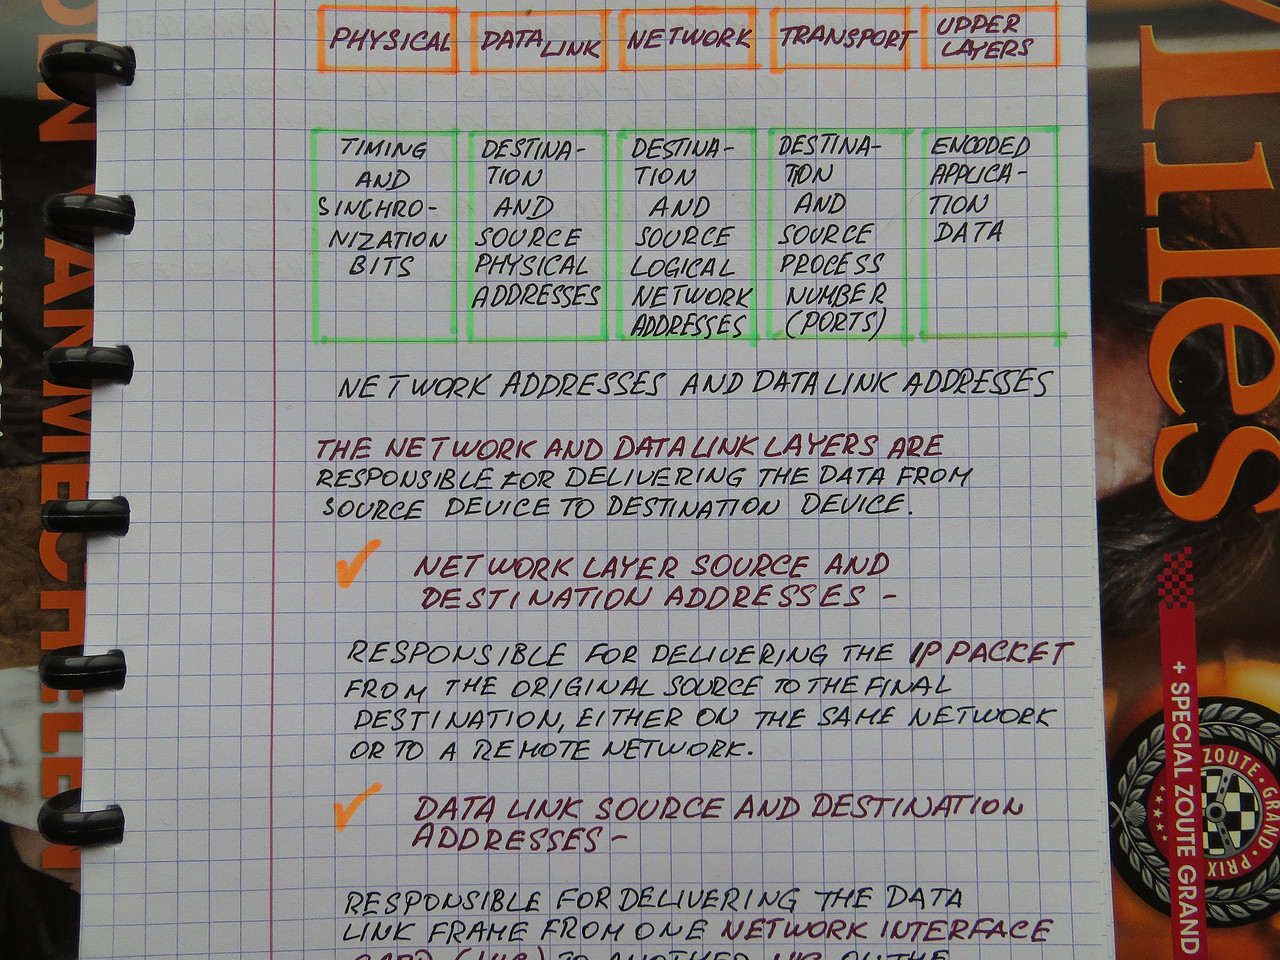 PHYSICAL
DATA LINK
NETWORK
TRANSPORT
UPPER
LAYERS
TIMING
AND
SINCHRO-
NIZATION
BITS
DESTINA-
TION
AND
SOURCE
PHYSICAL
ADDRESSES
DESTINA-
TION
AND
SOURCE
LOGICAL
NETWORK
ADDRESSES
DESTINA-
TION
AND
SOURCE
PROCESS
NUMBER
(PORTS)
ENCODED
APPLICA-
TION
DATA
NETWORK ADDRESSES AND DATA LINK ADDRESSES
THE NETWORK AND DATA LINK LAYERS ARE
RESPONSIBLE FOR DELIVERING THE DATA FROM
SOURCE DEVICE TO DESTINATION DEVICE.
✓ NETWORK LAYER SOURCE AND
DESTINATION ADDRESSES -
RESPONSIBLE FOR DELIVERING THE IP PACKET
FROM THE ORIGINAL SOURCE TO THE FINAL
DESTINATION, EITHER ON THE SAME NETWORK
OR TO A REMOTE NETWORK.
✓ DATA LINK SOURCE AND DESTINATION
ADDRESSES -
RESPONSIBLE FOR DELIVERING THE DATA
LINK FRAME FROM ONE NETWORK INTERFACE
CARD (NIC) TO ANOTHER NIC ON THE
VANMECHELEN
illes
+ SPECIAL ZOUTE GRAND
ZOUTE GRAND PRIX